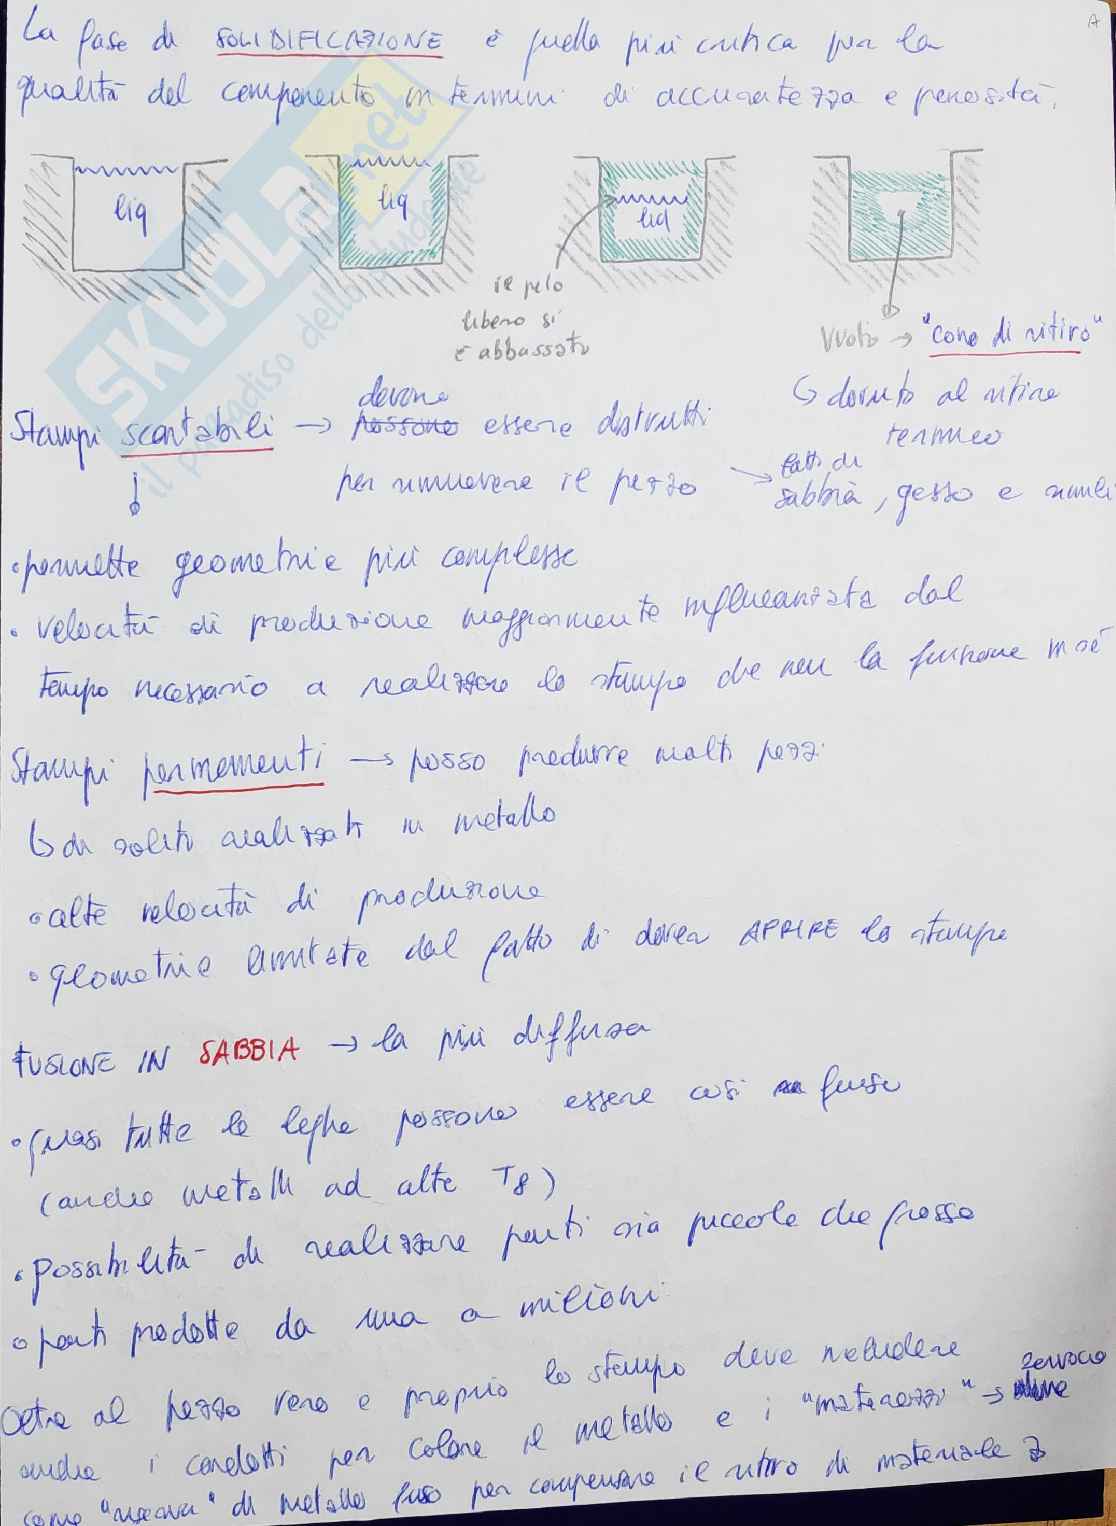 A
La fase di SOLIDIFICAZIONE è quella più critica per la
qualità del componente in termini di accuratezza e porosità.
liq
liq
liq
il pelo
libero si
è abbassato
Vuoto → "cono di ritiro"
↳ dovuto al ritiro
termico
SKUOLA.net
il paradiso dello studente
devono
Stampi scartabili → possono essere distrutti
per rimuovere il pezzo → fatti di
sabbia, gesso e simili
• permette geometrie più complesse
• velocità di produzione maggiormente influenzata dal
tempo necessario a realizzare lo stampo che non la fusione in sé
Stampi permementi → posso produrre molti pezzi
↳ di solito realizzati in metallo
• alte velocità di produzione
• geometrie limitate dal fatto di dover APRIRE lo stampo
FUSIONE IN SABBIA → la più diffusa
• quasi tutte le leghe possono essere così fuse
(anche metalli ad alte Tf)
• possibilità di realizzare parti sia piccole che grosse
• parti prodotte da una a milioni
Oltre al pezzo vero e proprio lo stampo deve includere
anche i condotti per colare il metallo e i "materozzi" → servono
come "riserva" di metallo fuso per compensare il ritiro di materiale